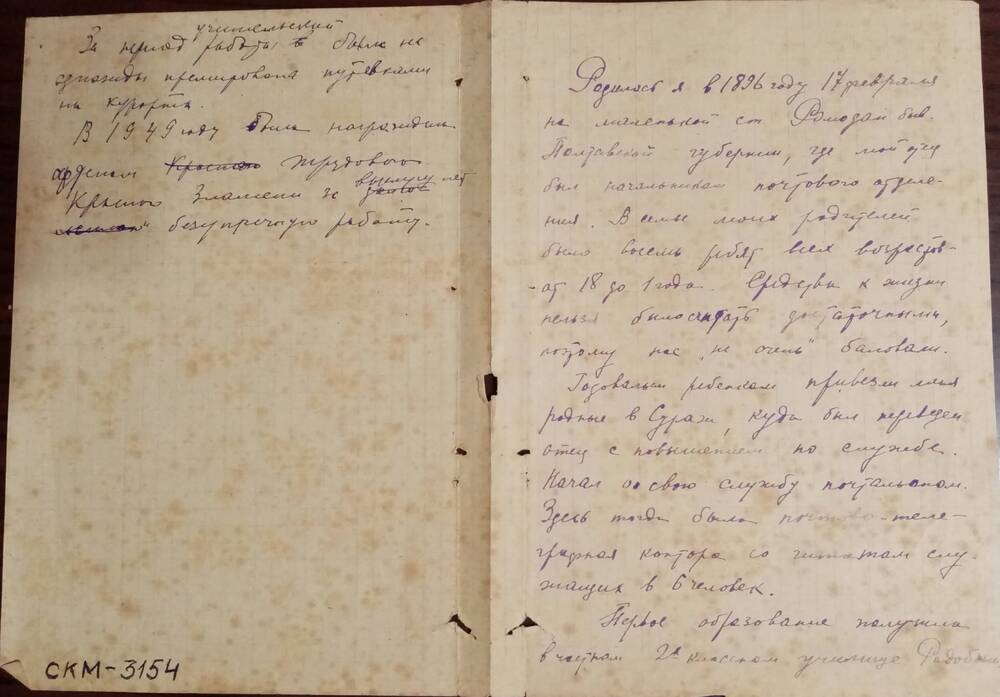 учительский
За период работы была не
однажды премирована путевками
на курорты.
В 1949 году была награждена
орденом Трудового
выслугу лет
Красного Знамени за
безупречную работу.
СКМ-3154
Родилась я в 1896 году 17 февраля
на маленькой ст. Ромодан быв.
Полтавской губернии, где мой отец
был начальником почтового отделе-
ния. В семье моих родителей
было восемь ребят всех возрастов-
от 18 до 1 года. Средства к жизни
нельзя было считать достаточными,
поэтому нас „не очень" баловали.
Годовалым ребенком привезли меня
родные в Сураж, куда был переведен
отец с повышением по службе.
Начал он свою службу почтальоном.
Здесь тогда была почтово-теле-
графная контора со штатом слу-
жащих в 6 человек.
Первое образование получила
в частном 2х классном училище